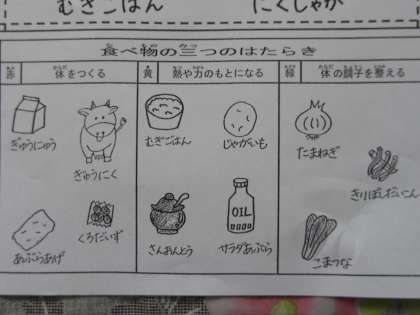 むぎごはん
にくじゃが
食べ物の三つのはたらき
赤 体をつくる
黄 熱や力のもとになる
緑 体の調子を整える
ぎゅうにゅう
ぎゅうにく
あぶらあげ
くろだいず
むぎごはん
じゃがいも
さんおんとう
サラダあぶら
OIL
たまねぎ
きりぼしだいこん
こまつな